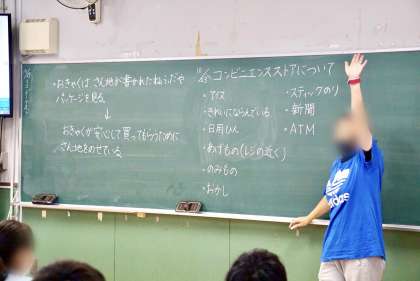 ・おきゃくは、さん地が書かれたねふだや
パッケージを見る。
↓
おきゃくが安心して買ってもらうために
さん地をのせている。
コンビニエンスストアについて
・アイス
・きれいにならんでいる
・日用ひん
・あげもの(レジの近く)
・のみもの
・おかし
・スティックのり
・新聞
・ATM
adidas